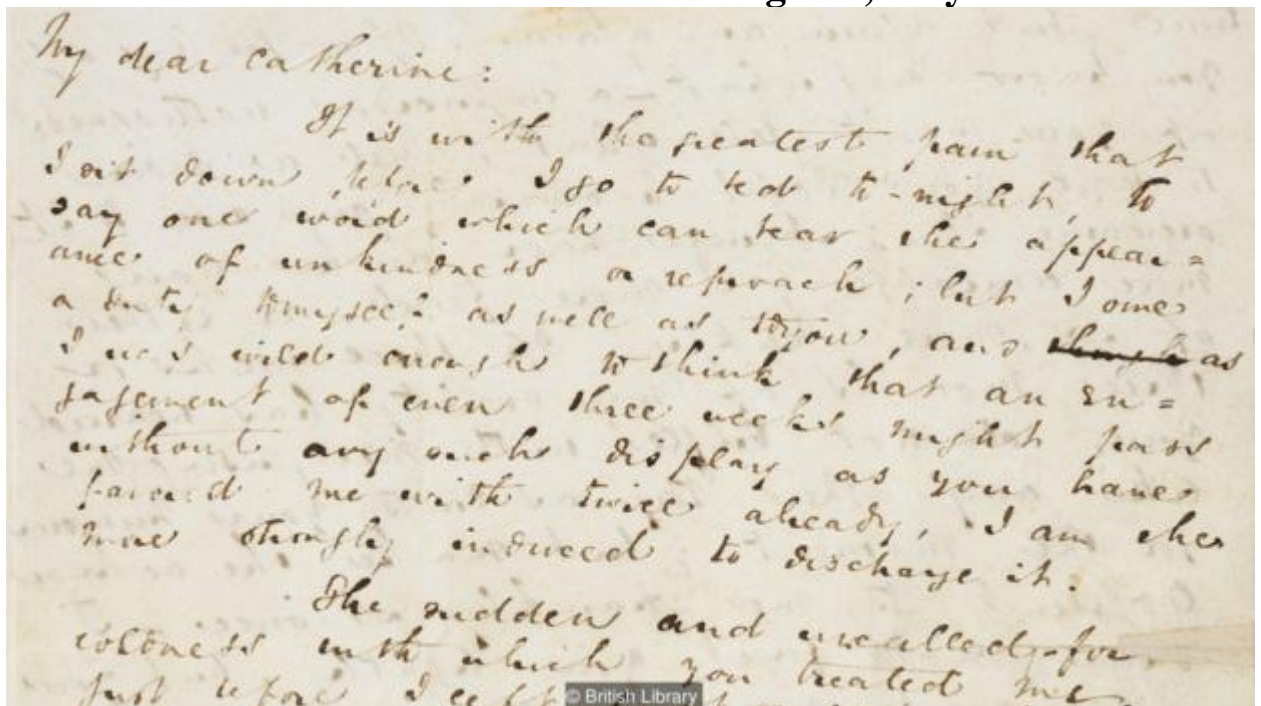 My dear Catherine:
It is with the greatest pain that
I sit down, before I go to bed to-night, to
say one word which can bear the appear=
ance of unkindness or reproach; but I owe
a duty to myself as well as to you, and as
I was wild enough to think that an en=
gagement of even three weeks might pass
without any such display as you have
favored me with twice already, I am the
more strongly induced to discharge it.
The sudden and uncalled-for
coldness with which you treated me
just before I left
© British Library